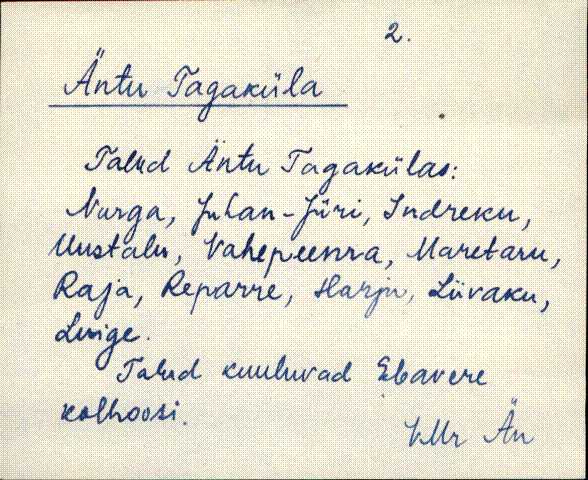 2.
Äntu Tagaküla
Talud Äntu Tagakülas:
Nurga, Juhan-Jüri, Indreku,
Uustalu, Vahepeenra, Maretaru,
Raja, Reparre, Harju, Liivaku,
Luige.
Talud kuuluvad Ebavere
kolhoosi.
VMr Än